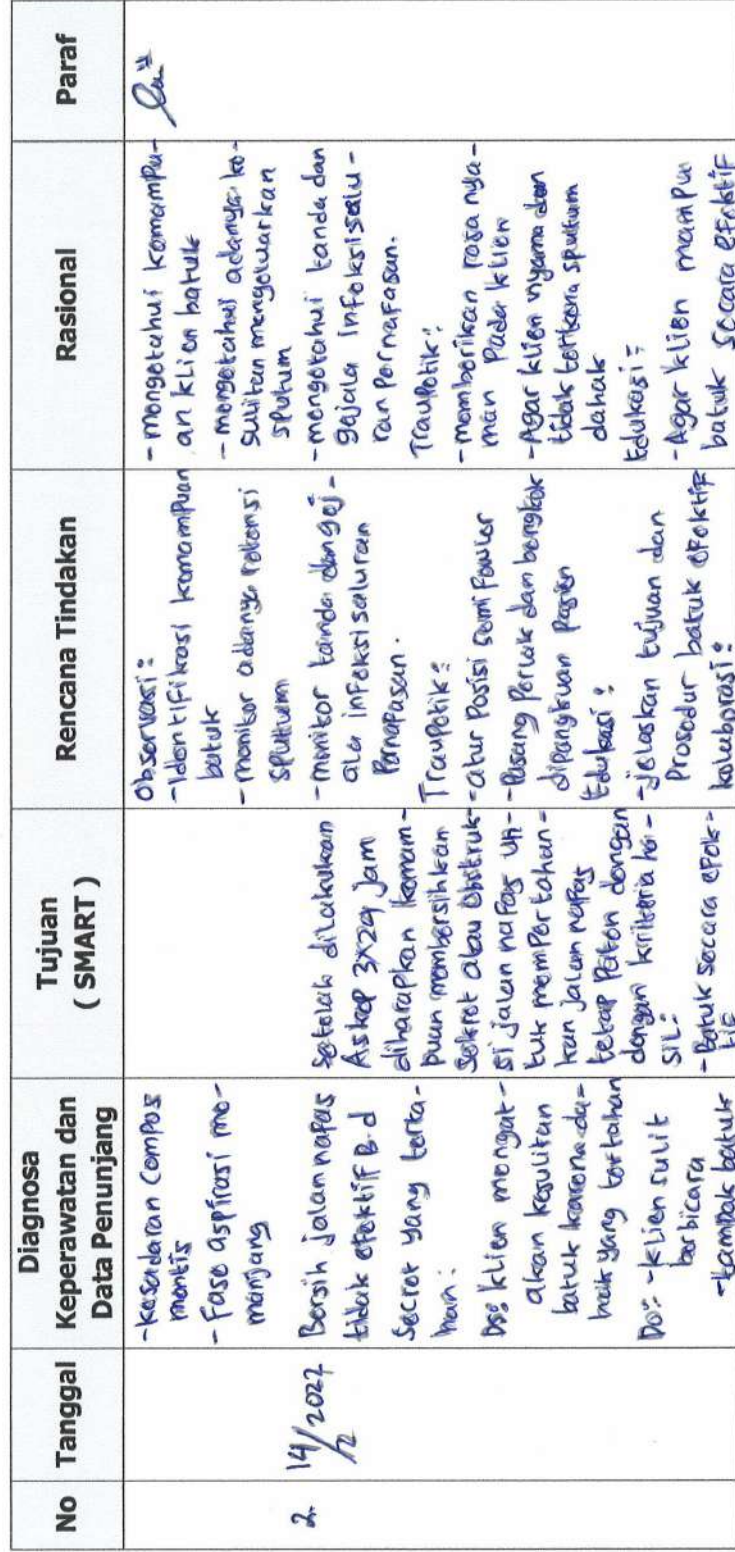 No
Tanggal
Diagnosa
Keperawatan dan
Data Penunjang
Tujuan
( SMART )
Rencana Tindakan
Rasional
Paraf
-Kesadaran Compos
mentis
- Fase aspirasi me-
manjang
2.
14/12 2022
Bersih jalan nafas
tidak efektif B.d
Secret yang terta-
han:
DS: Klien mengat-
akan kesulitan
batuk karena da-
hak yang tertahan
Do: -Klien sulit
berbicara
-tampak batuk
Setelah dilakukan
Askep 3x24 jam
diharapkan kemam-
puan membersihkan
Sekret atau obstruk-
si jalan nafas un-
tuk mempertahan-
kan jalan nafas
tetap Paten dengan
dengan kriteria ha-
sil:
-Batuk secara efek-
tif
Observasi:
-Identifikasi kemampuan
batuk
-monitor adanya retensi
sputum
-monitor tanda dan gej-
ala infeksi saluran
Pernapasan.
Traupetik:
-atur Posisi semi Fowler
-Pasang Perlak dan bengkok
dipangkuan Pasien
Edukasi:
-jelaskan tujuan dan
Prosedur batuk efektif
kolaborasi:
-mengetahui kemampu-
an klien batuk
-mengetahui adanya ke-
sulitan mengeluarkan
sputum
-mengetahui tanda dan
gejala infeksi salu-
ran Pernafasan.
Traupetik:
-memberikan rasa nya-
man Pada klien
-Agar klien nyaman dan
tidak terkena sputum
dahak
Edukasi:
-Agar klien mampu
batuk secara efektif